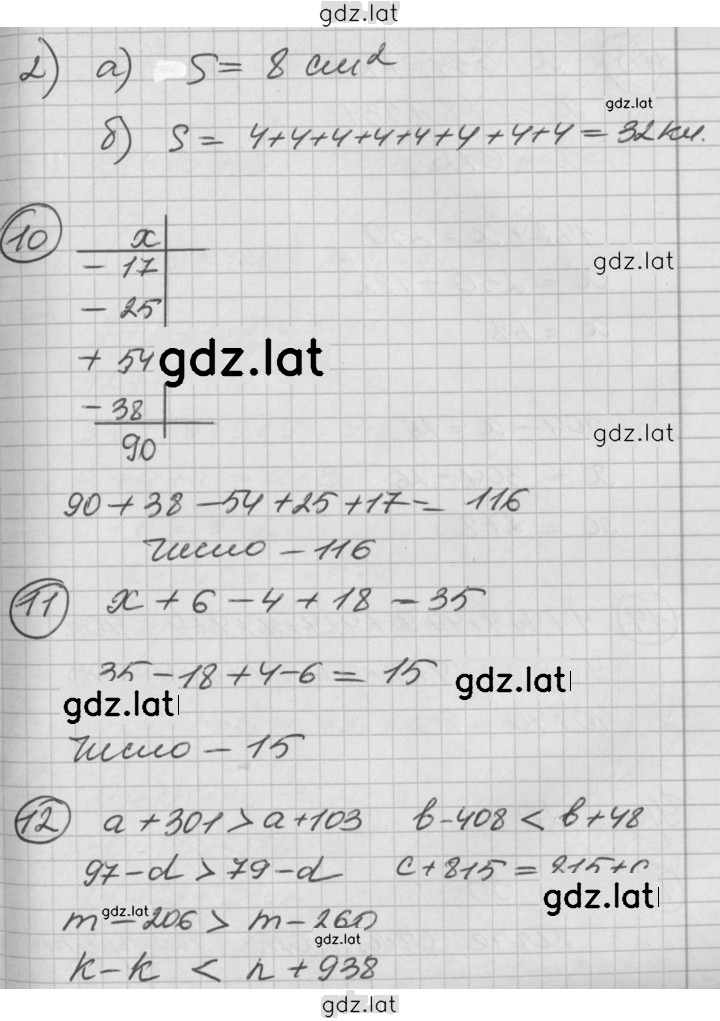 gdz.lat
2) а) S = 8 см²
gdz.lat
б) S = 4+4+4+4+4+4+4+4 = 32 км.
10 x
- 17
gdz.lat
- 25
+ 54
gdz.lat
- 38
gdz.lat
90
90 + 38 - 54 + 25 + 17 = 116
Число - 116
11 x + 6 - 4 + 18 - 35
35 - 18 + 4 - 6 = 15
gdz.lat
gdz.lat
Число - 15
12 a + 301 > a + 103 b - 408 < b + 48
97 - d > 79 - d c + 815 = 815 + c
gdz.lat
m - 206 > m - 260
gdz.lat
gdz.lat
k - k < n + 938
gdz.lat